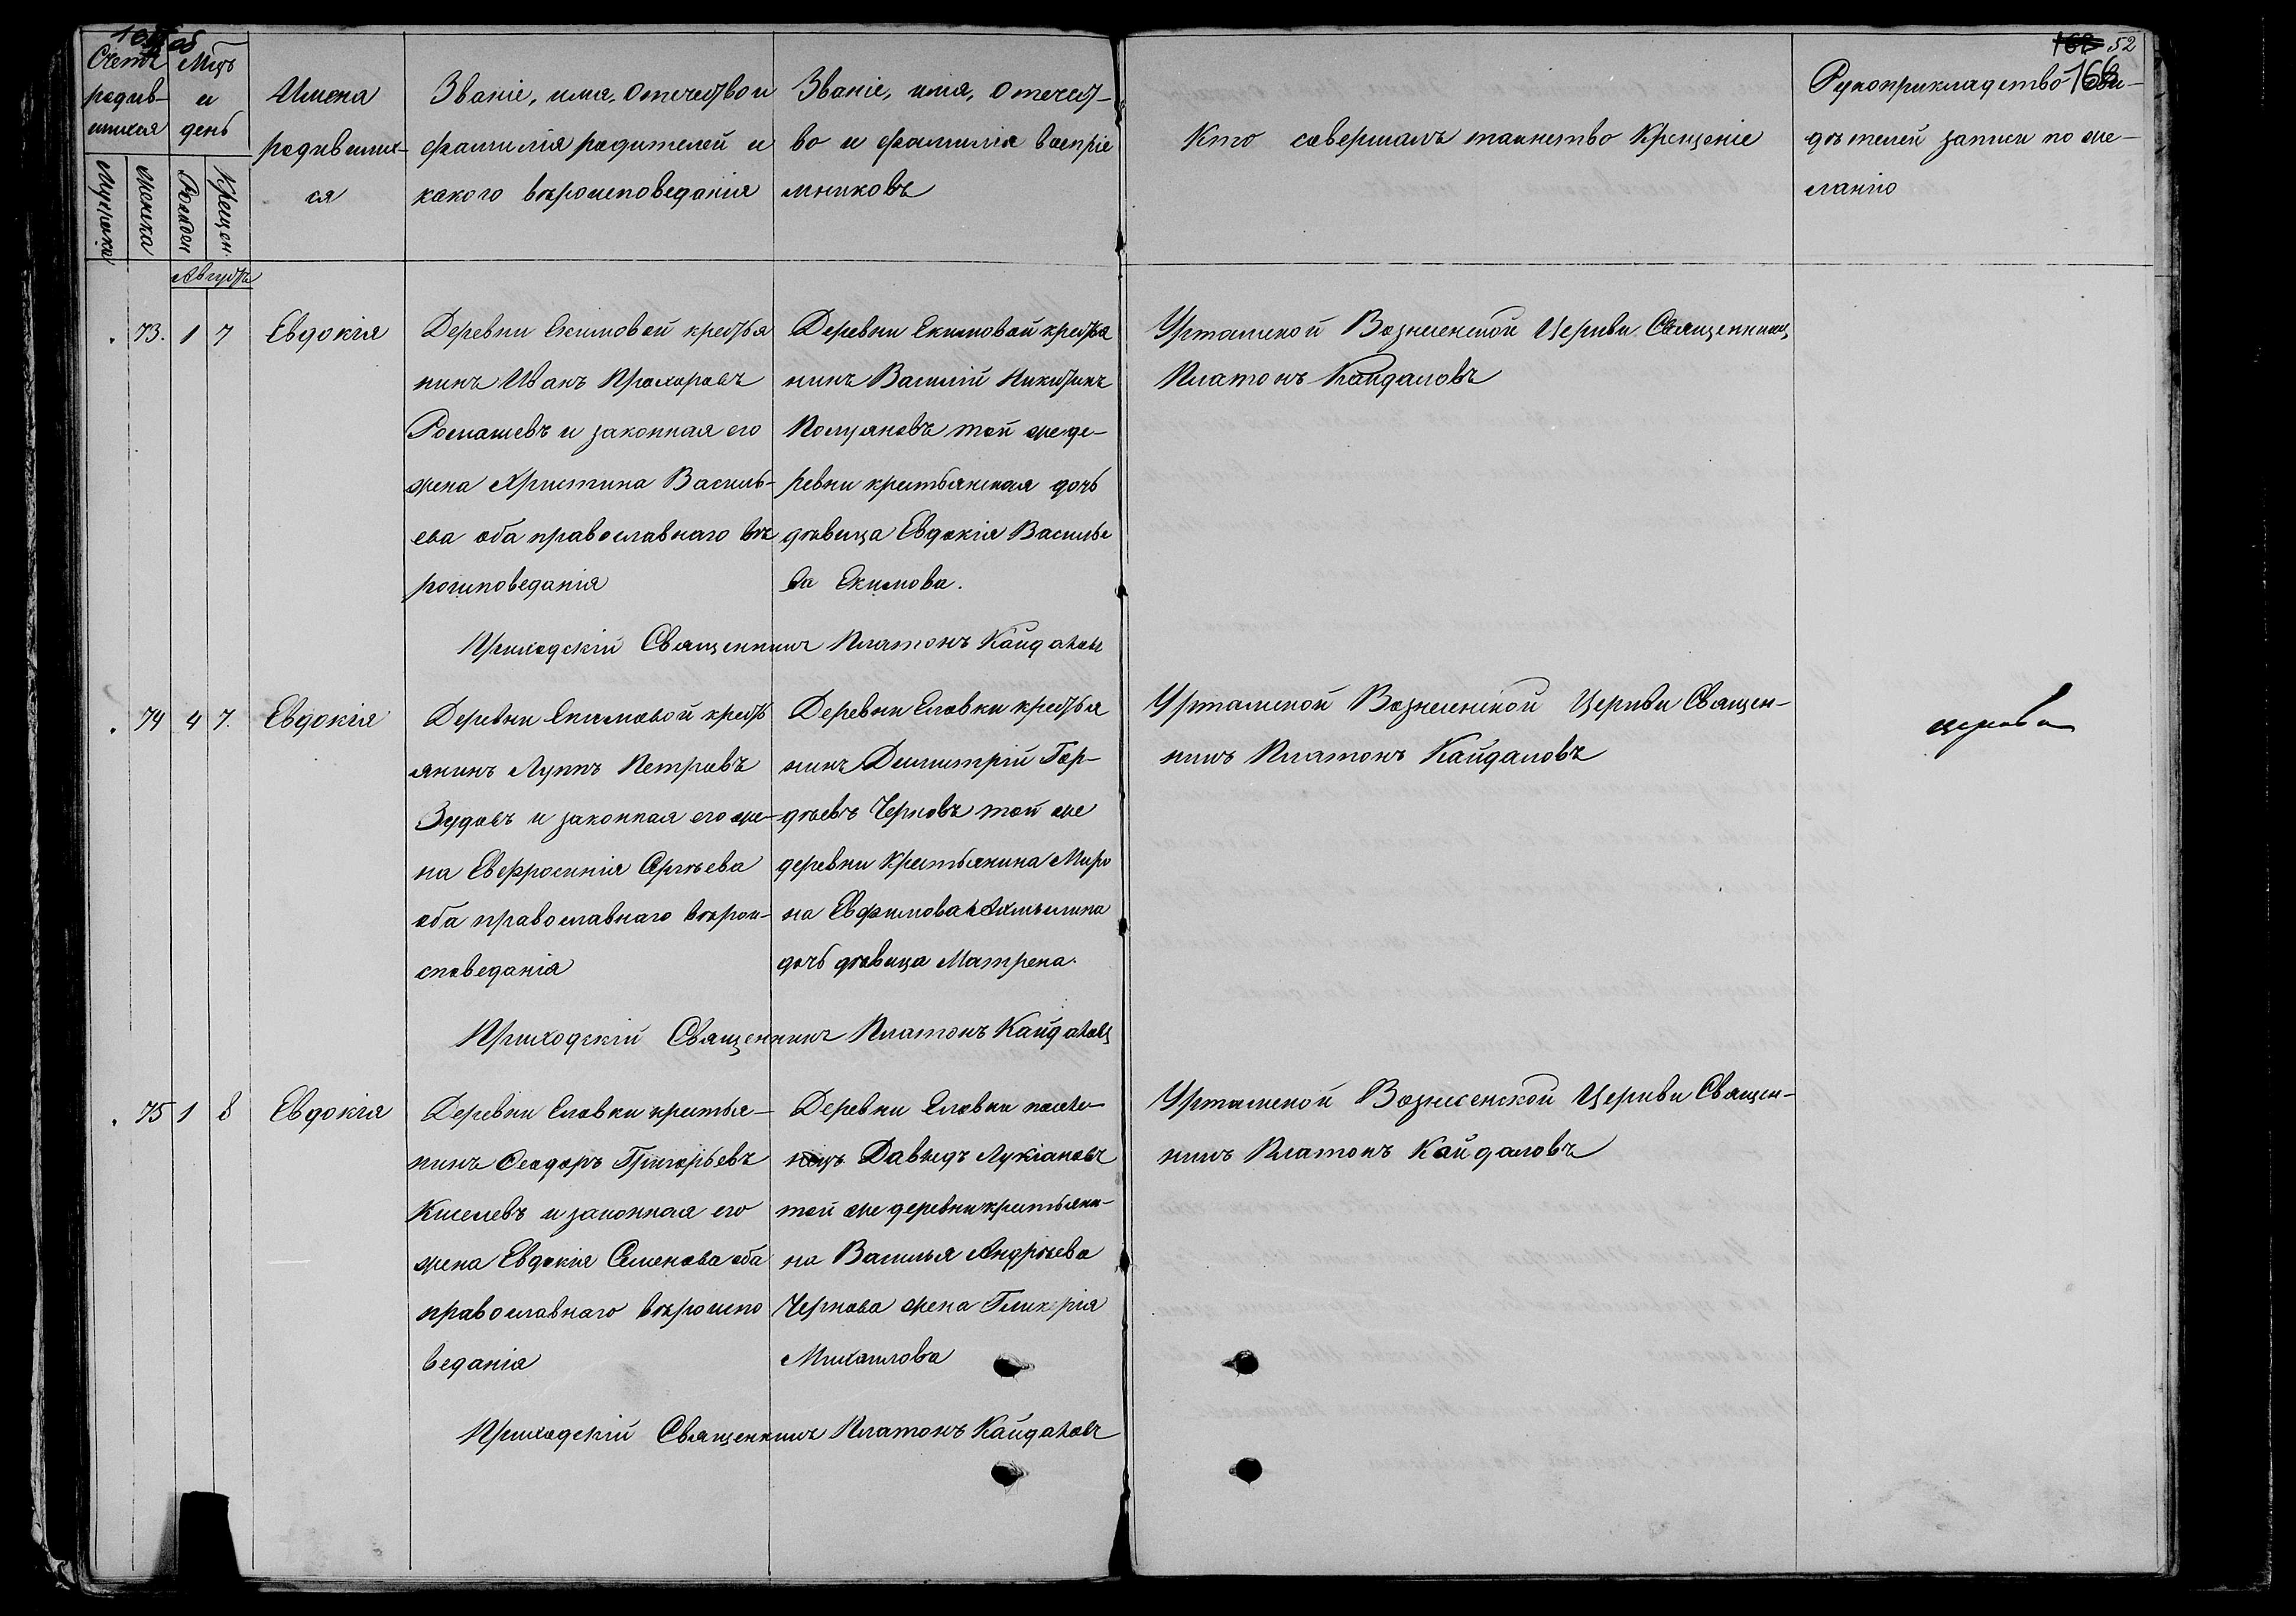 52
166
Счетъ родив-шихся
Мужска
Женска
Мцъ и день
Рожден
Крещен.
Имена родивших-ся
Званіе, имя, отечество и фамилія родителей и какого вѣроисповеданія
Званіе, имя, отечест-во и фамилія воспріе мниковъ
Кто совершалъ таинство Крещеніе
Рукоприкладство сви-дѣтелей записи по же-ланію
Августъ
73. 1 7 Евдокія
Деревни Екимовой крестья
нинъ Иванъ Прохоровъ
Ромашевъ и законная его
жена Христина Василь-
ева оба православнаго вѣ
роисповеданія
Деревни Екимовой крестья
нинъ Василій Никитинъ
Полуяновъ той же де-
ревни крестьянская дочь
дѣвица Евдокія Василье
ва Екимова.
Уртамской Вознесенской Церкви Священникъ
Платонъ Кайдаловъ
Приходскій Священникъ Платонъ Кайдаловъ
74 4 7. Евдокія
Деревни Екимовой кресть
янинъ Луппъ Петровъ
Зудовъ и законная его же-
на Евфросинія Сергѣева
оба православнаго вѣрои-
споведанія
Деревни Еловки крестья
нинъ Димитрій Гор-
дѣевъ Черновъ той же
деревни Крестьянина Миро
на Евфимова
дочь дѣвица Матрена.
Уртамской Вознесенской Церкви Священ-
никъ Платонъ Кайдаловъ
Приходскій Священникъ Платонъ Кайдаловъ
75 1 8 Евдокія
Деревни Еловки крестья-
нинъ Феодоръ Григорьевъ
Киселевъ и законная его
жена Евдокія Семенова оба
православнаго вѣроиспо
веданія
Деревни Еловки поселе-
нецъ Давыдъ Лукіановъ
той же деревни крестьяни-
на Василья Андрѣева
Чернова жена Гликерія
Михаилова
Уртамской Вознесенской Церкви Священ-
никъ Платонъ Кайдаловъ
Приходскій Священникъ Платонъ Кайдаловъ